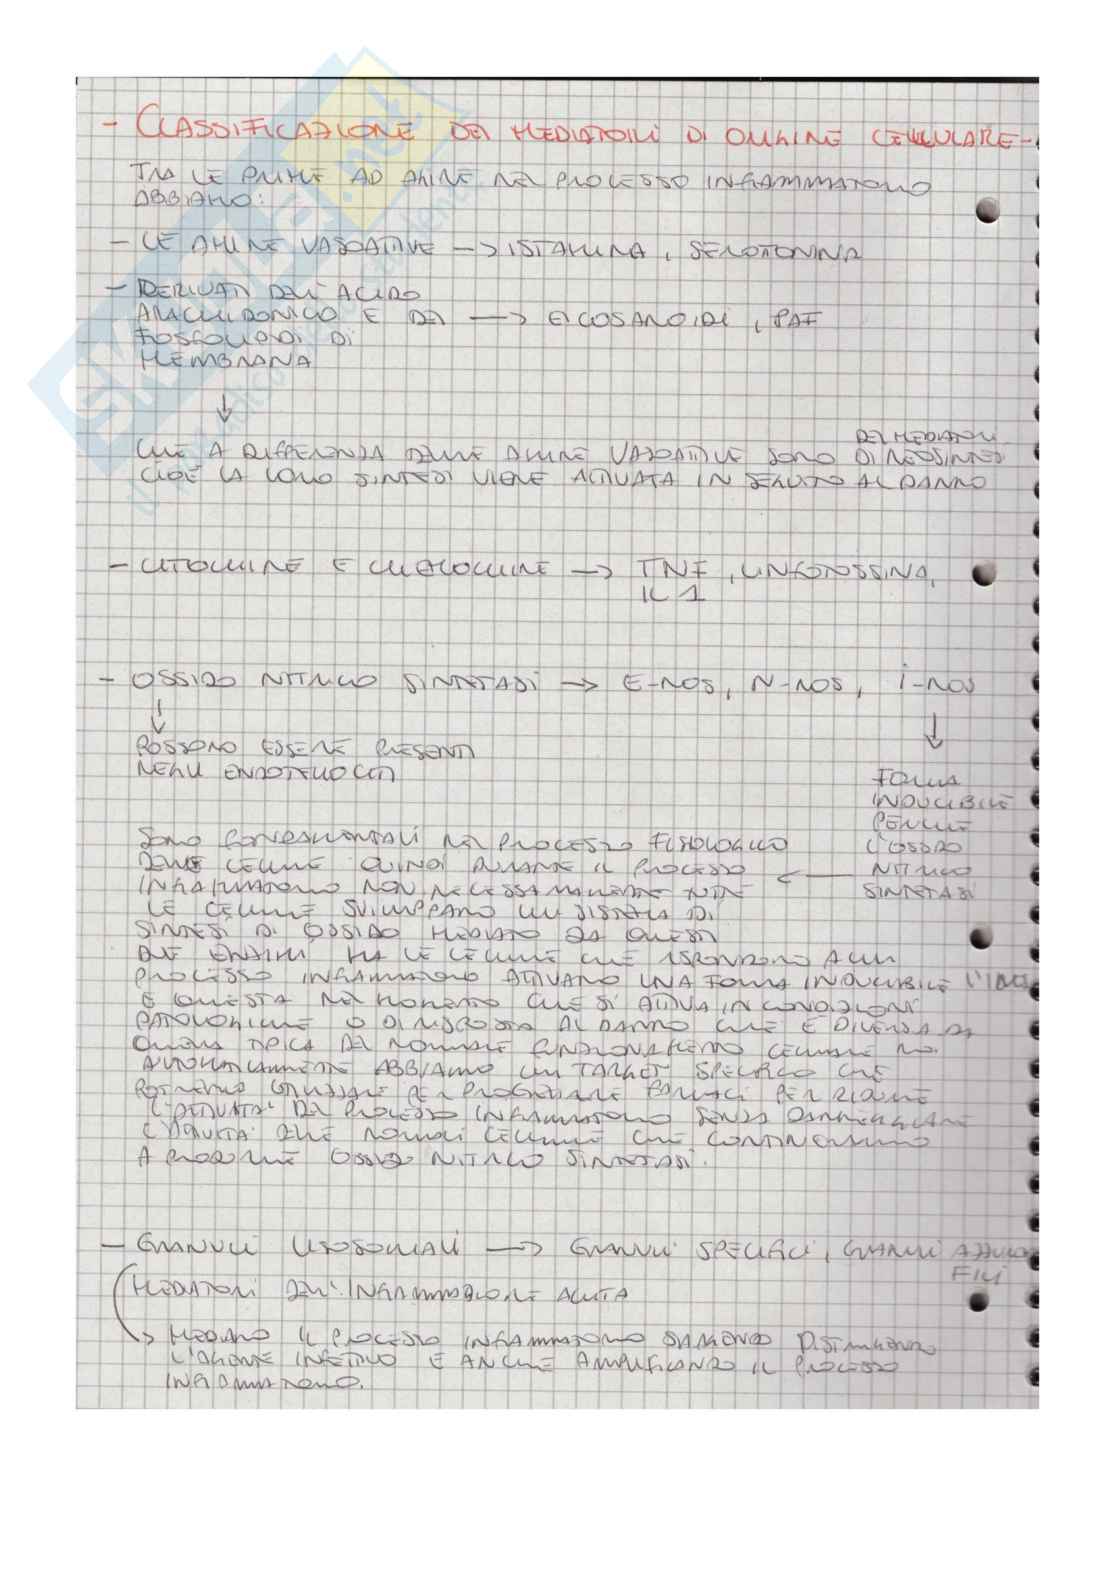 - CLASSIFICAZIONE DEI MEDIATORI DI ORIGINE CELLULARE -
TRA LE PRIME AD AGIRE NEL PROCESSO INFIAMMATORIO
ABBIAMO:
- LE AMINE VASOATTIVE -> ISTAMINA, SEROTONINA
- DERIVATI DELL'ACIDO
ARACHIDONICO E DEI -> EICOSANOIDI, PAF
FOSFOLIPIDI DI
MEMBRANA
↓
CHE A DIFFERENZA DELLE AMINE VASOATTIVE SONO DEI MEDIATORI DI NEOSINTESI
CIOÈ LA LORO SINTESI VIENE ATTIVATA IN SEGUITO AL DANNO
- CITOCHINE E CHEMOCHINE -> TNF, LINFOTOSSINA,
IL 1
- OSSIDO NITRICO SINTETASI -> E-NOS, N-NOS, i-NOS
↓ ↓
POSSONO ESSERE PRESENTI
NEGLI ENDOTELIOCITI
FORMA
INDUCIBILE
PERCHÈ
L'OSSIDO
NITRICO
SINTETASI
SONO FONDAMENTALI NEL PROCESSO FISIOLOGICO
DELLE CELLULE QUINDI DURANTE IL PROCESSO <-
INFIAMMATORIO NON NECESSARIAMENTE TUTTE
LE CELLULE SVILUPPANO UN SISTEMA DI
SINTESI DI OSSIDO MEDIATO DA QUESTI
DUE ENZIMI MA LE CELLULE CHE RISPONDONO A UN
PROCESSO INFIAMMATORIO ATTIVANO UNA FORMA INDUCIBILE
E QUESTA NEL MOMENTO CHE SI ATTIVA IN CONDIZIONI
PATOLOGICHE O DI RISPOSTA AL DANNO CHE È DIVERSA DA
QUELLA TIPICA DEL NORMALE FUNZIONAMENTO CELLULARE NOI
AUTOMATICAMENTE ABBIAMO UN TARGET SPECIFICO CHE
POTREMMO UTILIZZARE PER PROGETTARE FARMACI PER RIDURRE
L'ATTIVITA' DEL PROCESSO INFIAMMATORIO SENZA DANNEGGIARE
L'ATTIVITA' DELLE NORMALI CELLULE CHE CONTINUERANNO
A PRODURRE OSSIDO NITRICO SINTETASI.
- GRANULI LISOSOMIALI -> GRANULI SPECIFICI, GRANULI AZZURO
FILI
MEDIATORI DELL'INFIAMMAZIONE ACUTA
-> MEDIANO IL PROCESSO INFIAMMATORIO DISTRUGGENDO
L'AGENTE INFETTIVO E ANCHE AMPLIFICANDO IL PROCESSO
INFIAMMATORIO.